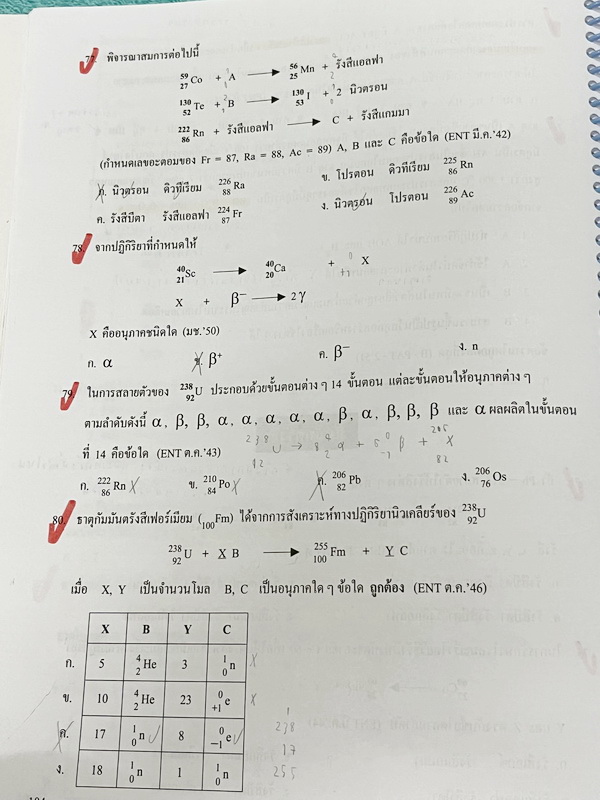 77. พิจารณาสมการต่อไปนี้
59 27 Co + A → 56 25 Mn + รังสีแอลฟา
130 52 Te + B → 130 53 I + 2 นิวตรอน
222 86 Rn + รังสีแอลฟา → C + รังสีแกมมา
(กำหนดเลขอะตอมของ Fr = 87, Ra = 88, Ac = 89) A, B และ C คือข้อใด (ENT มี.ค.'42)
ก. นิวตรอน ดิวทีเรียม 226 88 Ra ข. โปรตอน ดิวทีเรียม 225 86 Rn
ค. รังสีบีตา รังสีแอลฟา 224 87 Fr ง. นิวตรอน โปรตอน 226 89 Ac
78. จากปฏิกิริยาที่กำหนดให้
40 21 Sc → 40 20 Ca + 0 +1 X
X + β⁻ → 2γ
X คืออนุภาคชนิดใด (มช.'50)
ก. α ข. β⁺ ค. β⁻ ง. n
79. ในการสลายตัวของ 238 92 U ประกอบด้วยขั้นตอนต่าง ๆ 14 ขั้นตอน แต่ละขั้นตอนให้อนุภาคต่าง ๆ
ตามลำดับดังนี้ α, β, β, α, α, α, α, α, β, α, β, β, β และ α ผลผลิตในขั้นตอน
ที่ 14 คือข้อใด (ENT ต.ค.'43) 238 92 U → 8 4 2 α + 0 -1 β + 82 X
ก. 222 86 Rn X ข. 210 84 Po X ค. 206 82 Pb ง. 206 76 Os
80. ธาตุกัมมันตรังสีเฟอร์เมียม (100Fm) ได้จากการสังเคราะห์ทางปฏิกิริยานิวเคลียร์ของ 238 92 U
238 92 U + X B → 255 100 Fm + Y C
เมื่อ X, Y เป็นจำนวนโมล B, C เป็นอนุภาคใด ๆ ข้อใด ถูกต้อง (ENT ต.ค.'46)
X B Y C
ก. 5 4 2 He 3 1 0 n X
ข. 10 4 2 He 23 0 +1 e X
ค. 17 1 0 n 8 0 -1 e 238
17
ง. 18 1 0 n 1 1 0 n 255